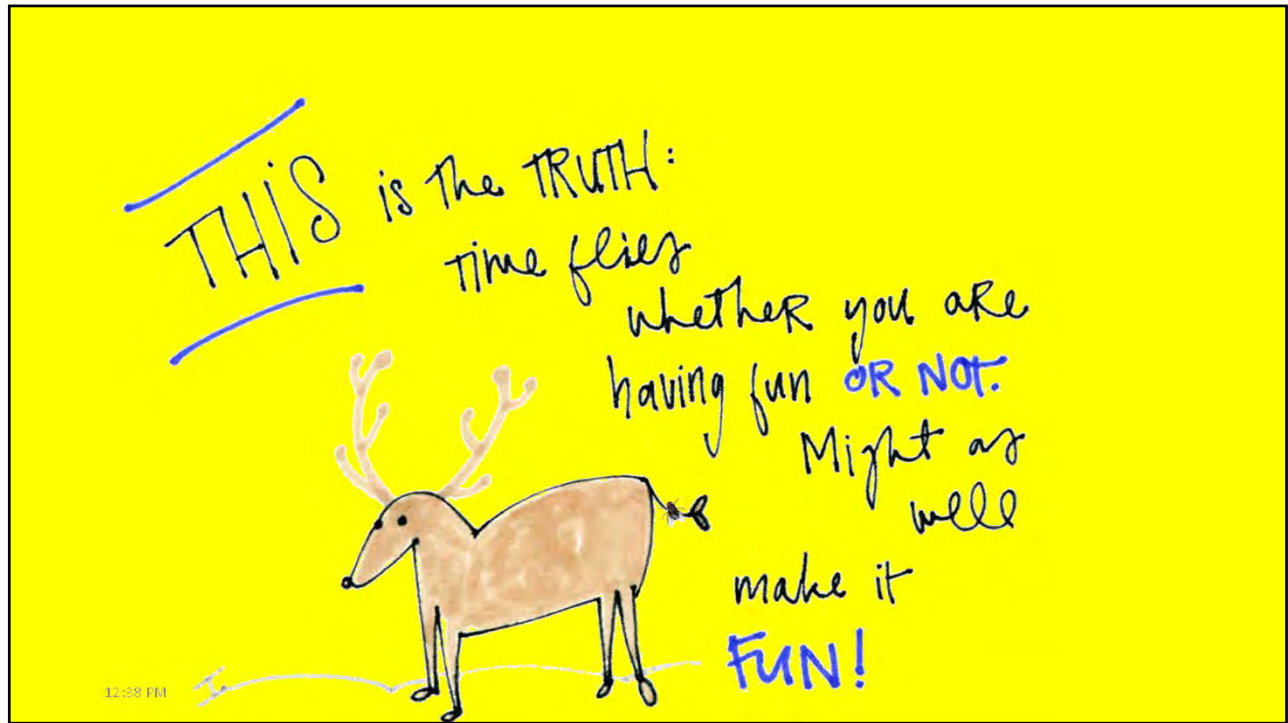 THiS is the TRUTH:
Time flies
whetheR you aRe
having fun OR NOT.
Might as
well
make it
FUN!
12:38 PM